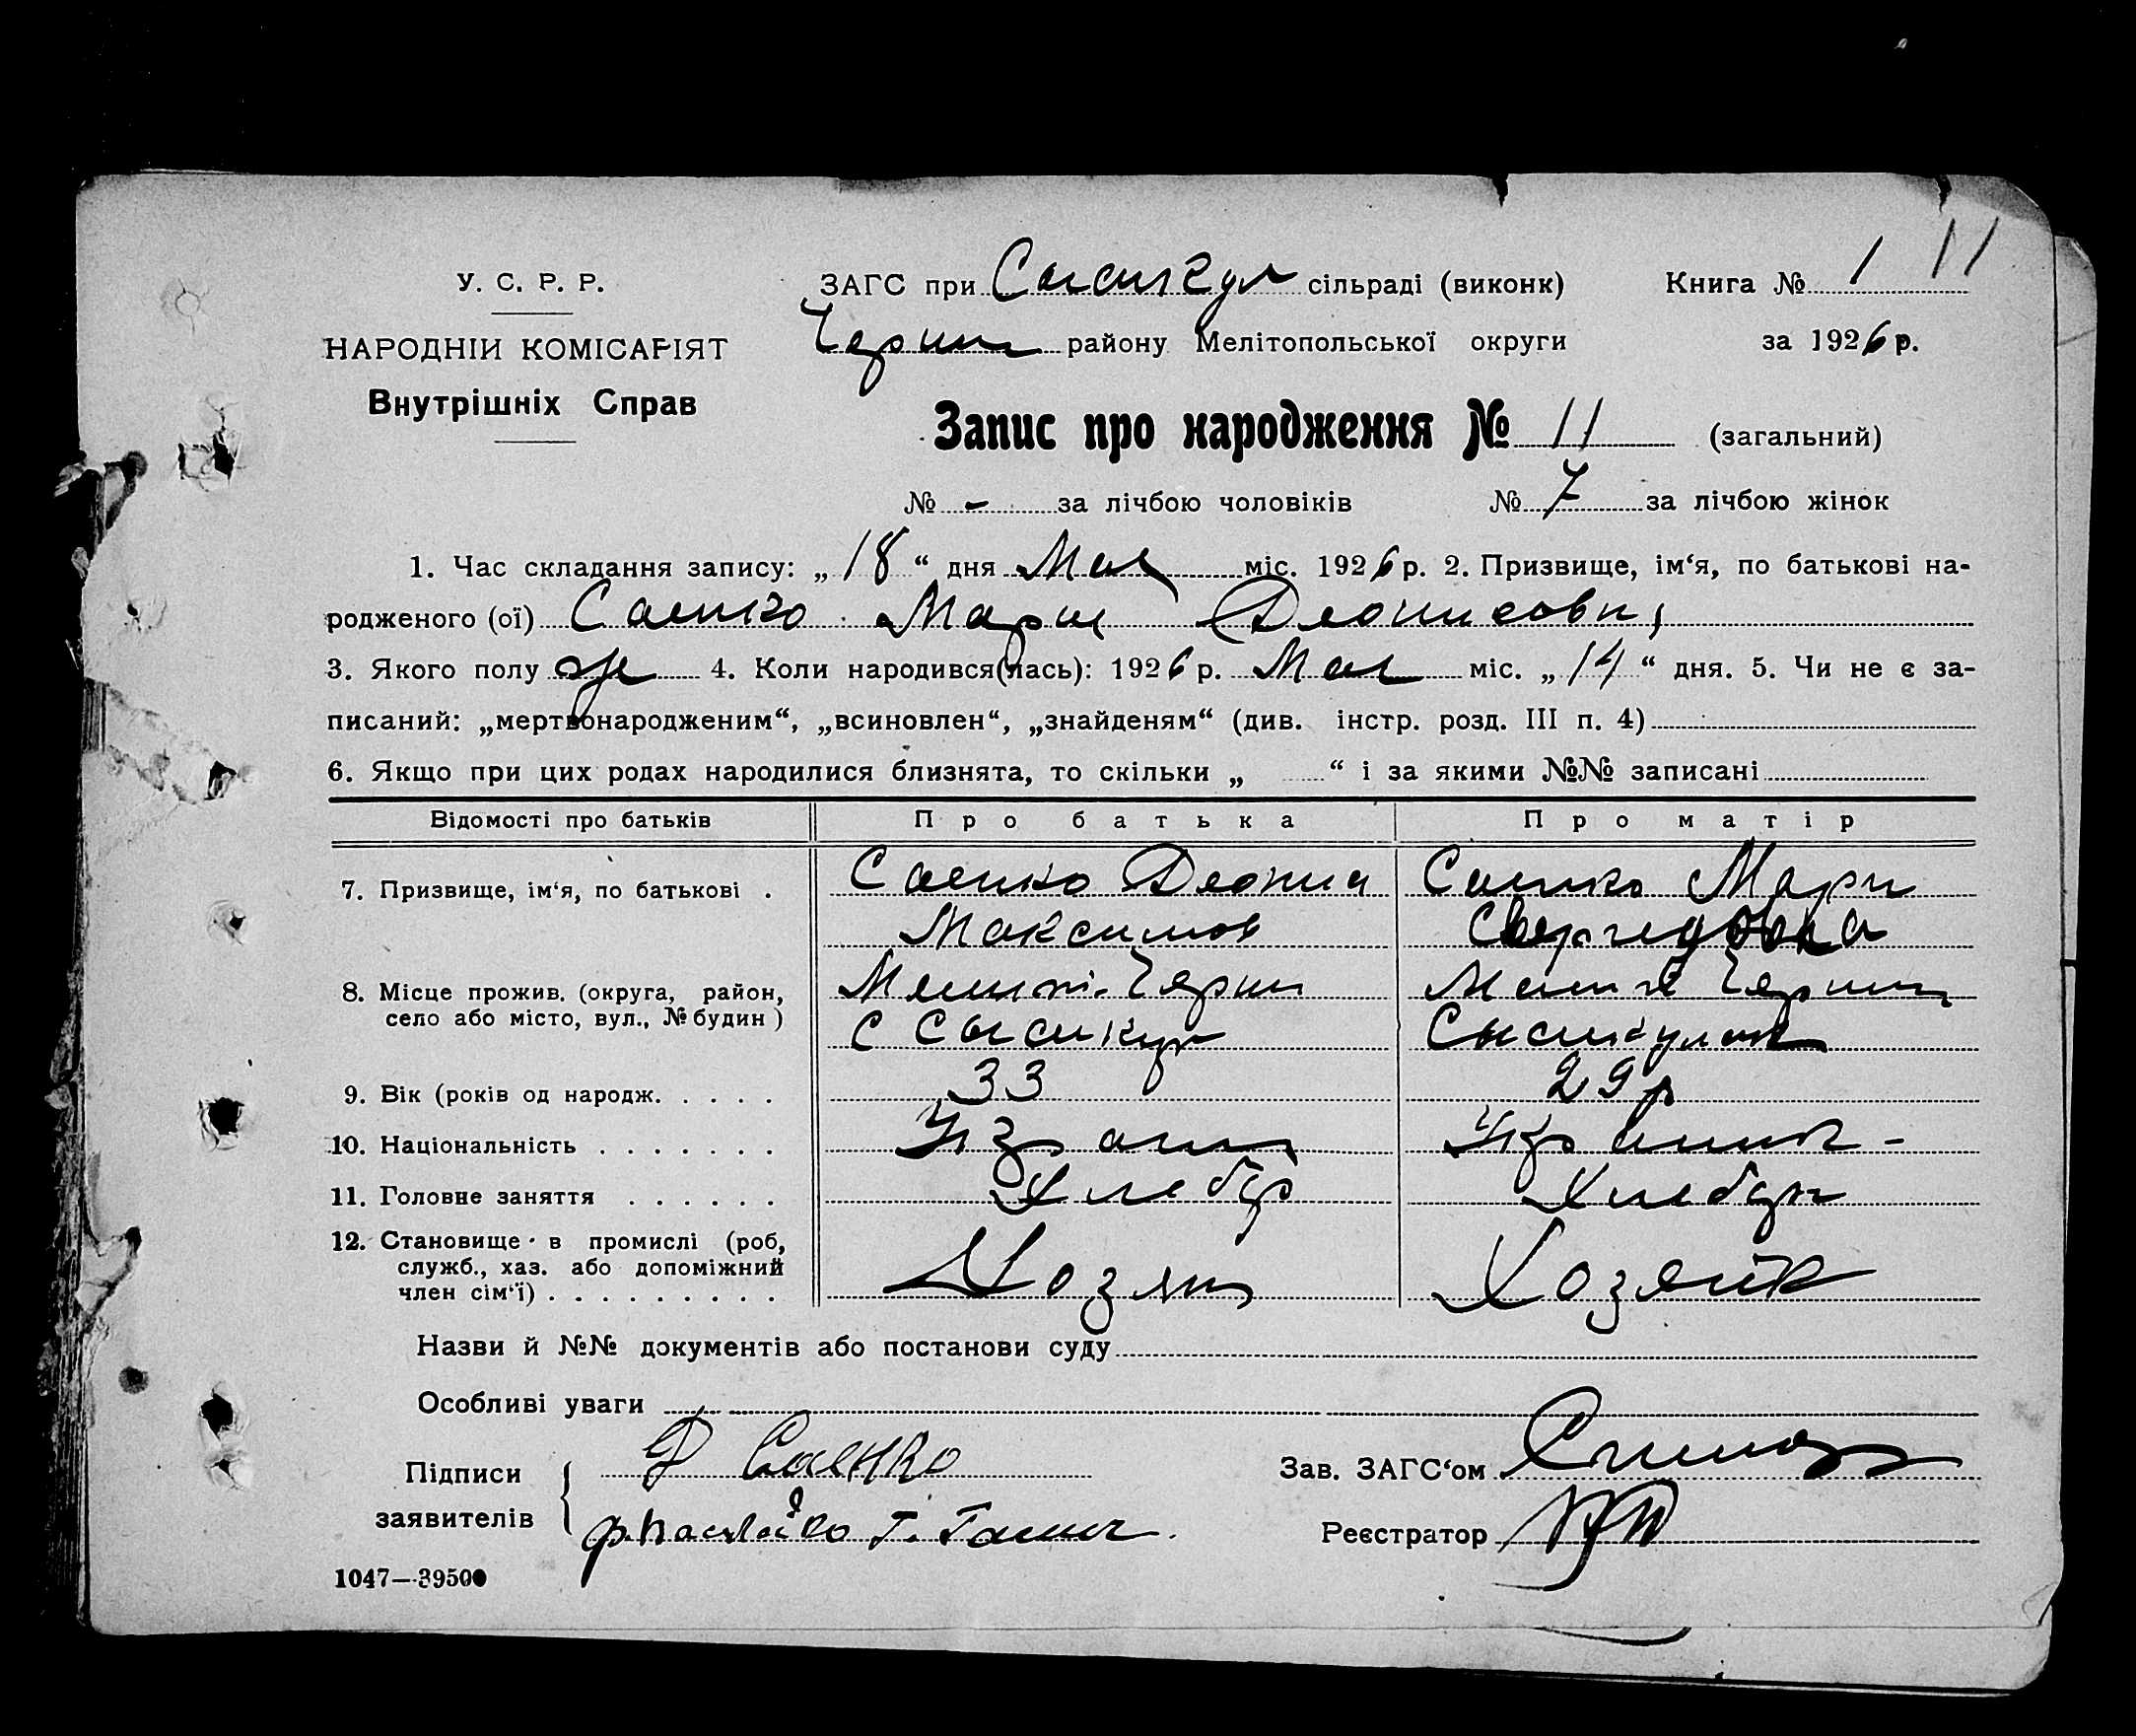 У. С. Р. Р.
НАРОДНІЙ КОМІСАРІЯТ
Внутрішніх Справ
ЗАГС при Сысикул сільраді (виконк)
Черни району Мелітопольської округи
Книга № 1 11
за 1926 р.
Запис про народження № 11 (загальний)
№ - за лічбою чоловіків № 7 за лічбою жінок
1. Час складання запису: „ 18 “ дня Мая міс. 1926 р. 2. Призвище, ім‘я, по батькові на-
родженого (ої) Саенко Мария
3. Якого полу ж 4. Коли народився(лась): 1926 р. Мая міс. „ 14 “ дня. 5. Чи не є за-
писаний: „мертвонародженим“, „всиновлен“, „знайденям“ (див. інстр. розд. III п. 4)
6. Якщо при цих родах народилися близнята, то скільки „ “ і за якими №№ записані
Відомості про батьків Про батька Про матір
7. Призвище, ім‘я, по батькові . Саенко Саенко Мария
Максимов
8. Місце прожив. (округа, район, Черни Черни
село або місто, вул., № будин ) С Сысикул
9. Вік (років од народж. . . . . 33 29 р
10. Національність . . . . . . .
11. Головне заняття . . . . . . Хлебор Хлебор
12. Становище в промислі (роб,
служб., хаз. або допоміжний
член сім‘ї) . . . . . . . . . Хозяин Хозяйк
Назви й №№ документів або постанови суду
Особливі уваги
Підписи
заявителів
Д Саенко
Зав. ЗАГС‘ом
Реєстратор
1047—39500